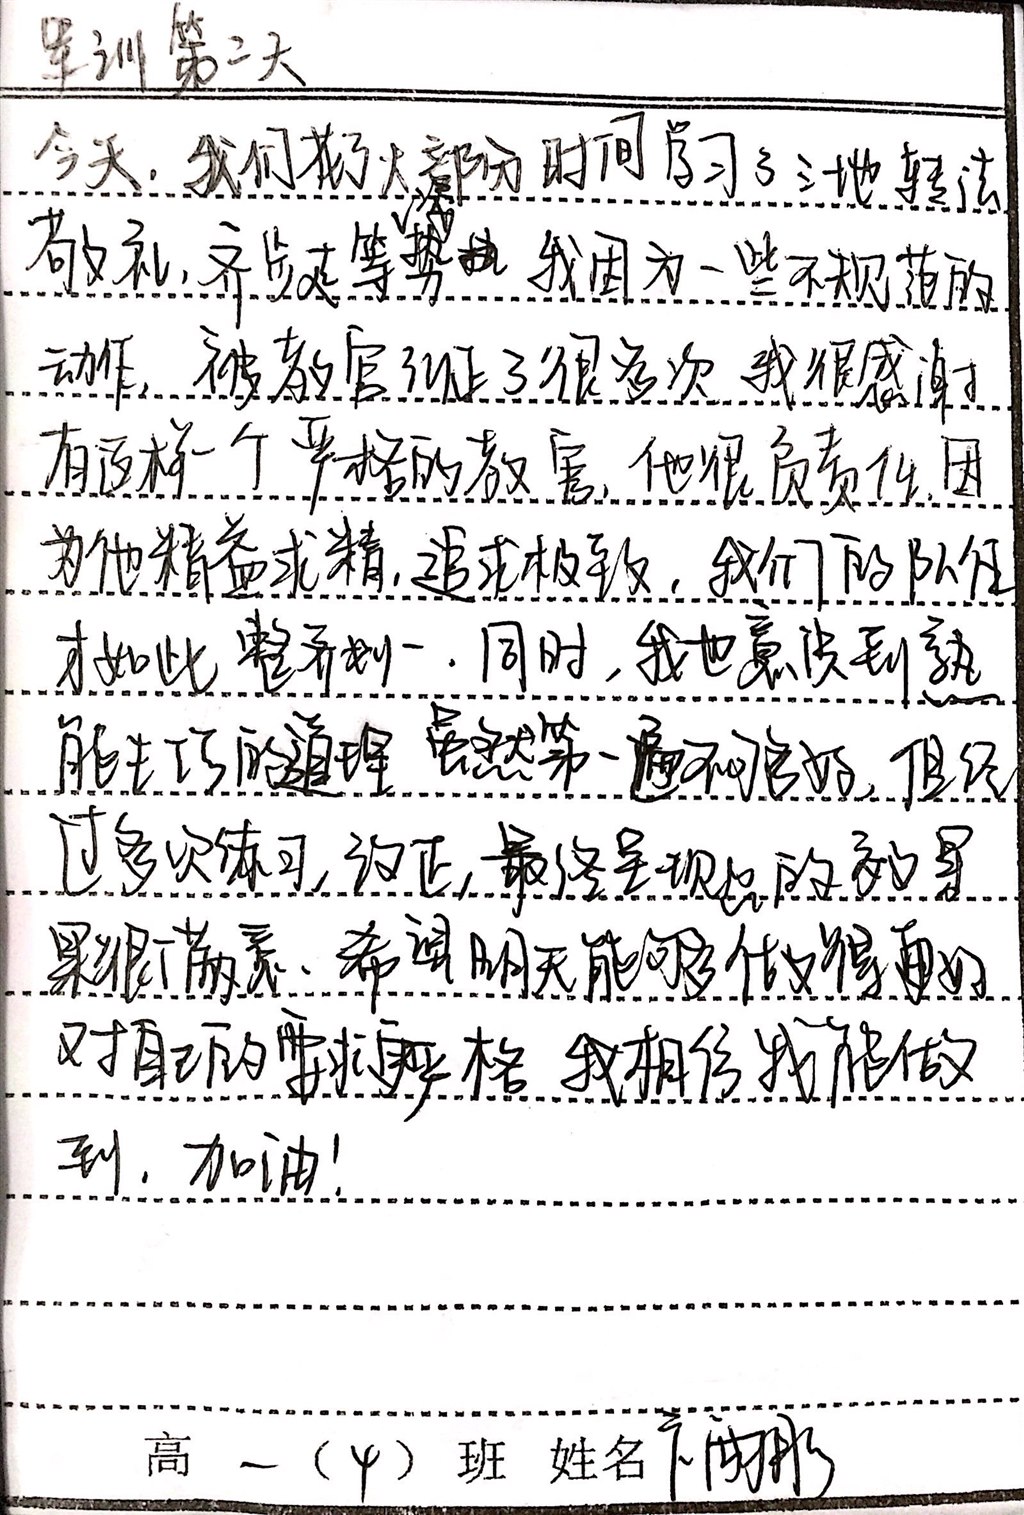 军训第二天
今天，我们花了大部分时间学习了三地转法
敬礼，齐步走等 我因为一些不规范的
动作，被教官纠正了很多次 我很感谢
有这样一个严格的教官，他很负责任，因
为他精益求精，追求极致，我们的队伍
才如此整齐划一．同时，我也意识到熟
能生巧的道理 虽然第一遍不很好，但经
过多次练习，纠正，最终呈现出的效果
果很满意．希望明天能够做得更好
对自己的要求更严格 我相信我能做
到，加油！
高一（4）班 姓名